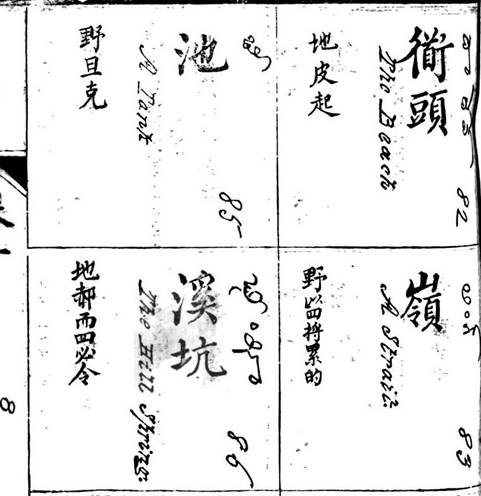 衜頭
The Beach
地皮起
82
嶺
A Strait:
累的
83
池
A Tank
野旦克
85
溪坑
The Hill Spring:
地郝而四必令
86
8